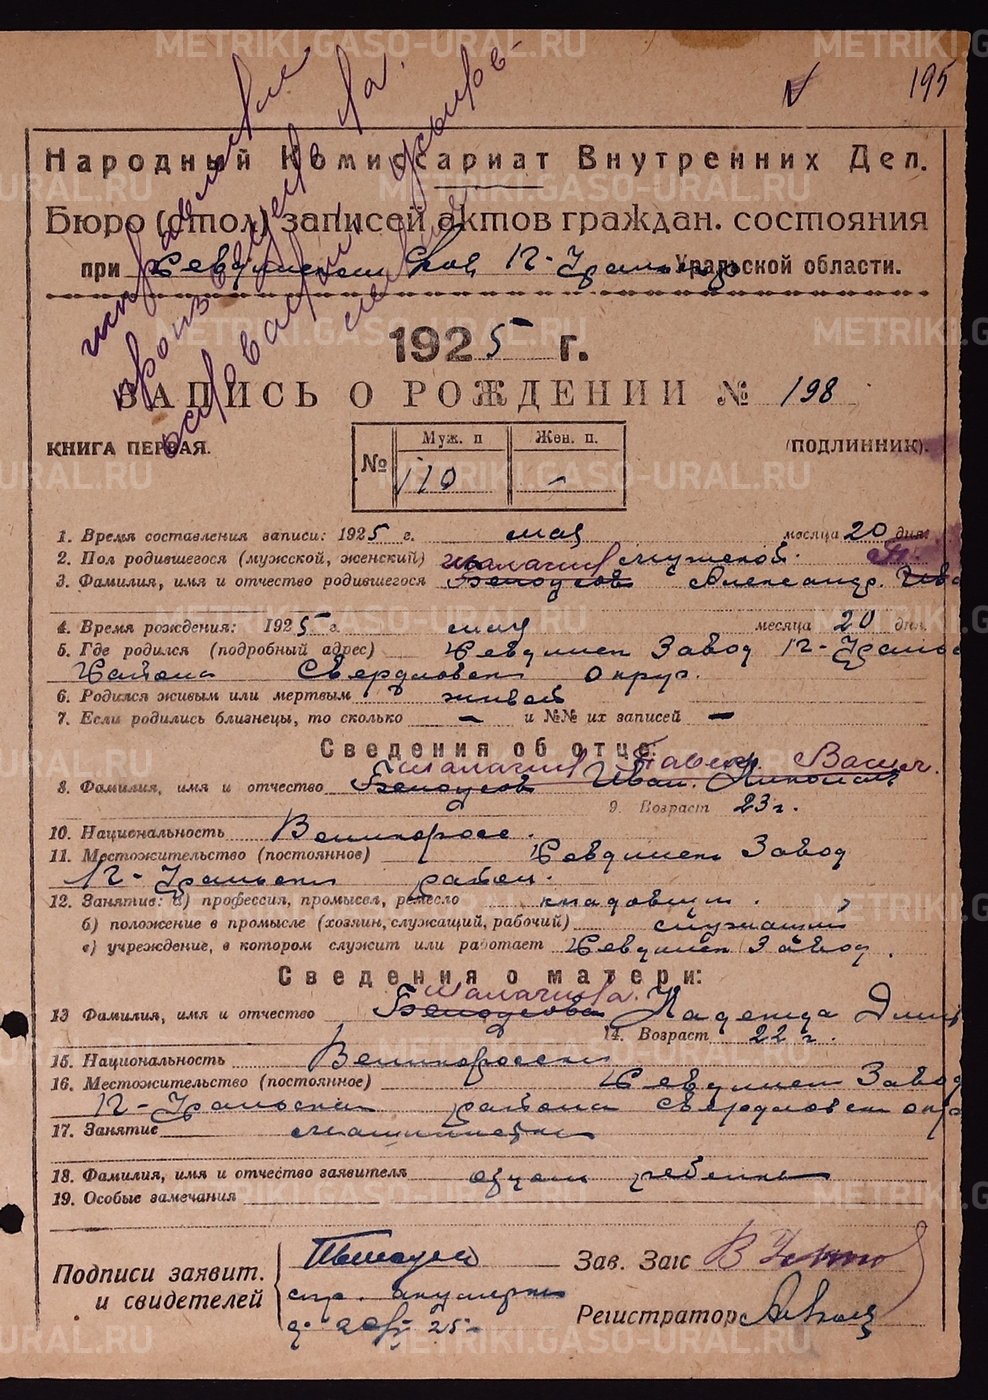 195
исправление
произведено на
основании
Народный Комиссариат Внутренних Дел.
Бюро (стол) записей актов граждан. состояния
при Уральской области.
1925 г.
ЗАПИСЬ О РОЖДЕНИИ № 198
КНИГА ПЕРВАЯ.
(ПОДЛИННИК).
№ Муж. п Жен. п.
110 -
1. Время составления записи: 1925 г. мая месяца 20 дня.
2. Пол родившегося (мужской, женский) мужской.
Малагин П.
3. Фамилия, имя и отчество родившегося Белоусов Александр Ива
4. Время рождения: 1925 г. мая месяца 20 дня.
5. Где родился (подробный адрес) Ревдинск Завод П-Уральс
Района Свердловск Округ.
6. Родился живым или мертвым живой
7. Если родились близнецы, то сколько — и №№ их записей —
Сведения об отце:
Малагин Павел Васил.
8. Фамилия, имя и отчество Белоусов Иван Николаев
9. Возраст 23 г.
10. Национальность Великоросс.
11. Местожительство (постоянное) Ревдинск Завод
П-Уральский район.
12. Занятие: а) профессия, промысел, ремесло кладовщик.
б) положение в промысле (хозяин, служащий, рабочий) служащий
в) учреждение, в котором служит или работает Ревдинск Завод.
Сведения о матери:
Малагина.
13 Фамилия, имя и отчество Белоусова Надежда Дмит
14. Возраст 22 г.
15. Национальность Великоросски
16. Местожительство (постоянное) Ревдинск Завод
П-Уральская района Свердловск окр
17. Занятие машинистка
18. Фамилия, имя и отчество заявителя отцом ребенка
19. Особые замечания
Подписи заявит.
и свидетелей
Зав. Загс
Регистратор
METRIKI.GASO-URAL.RU